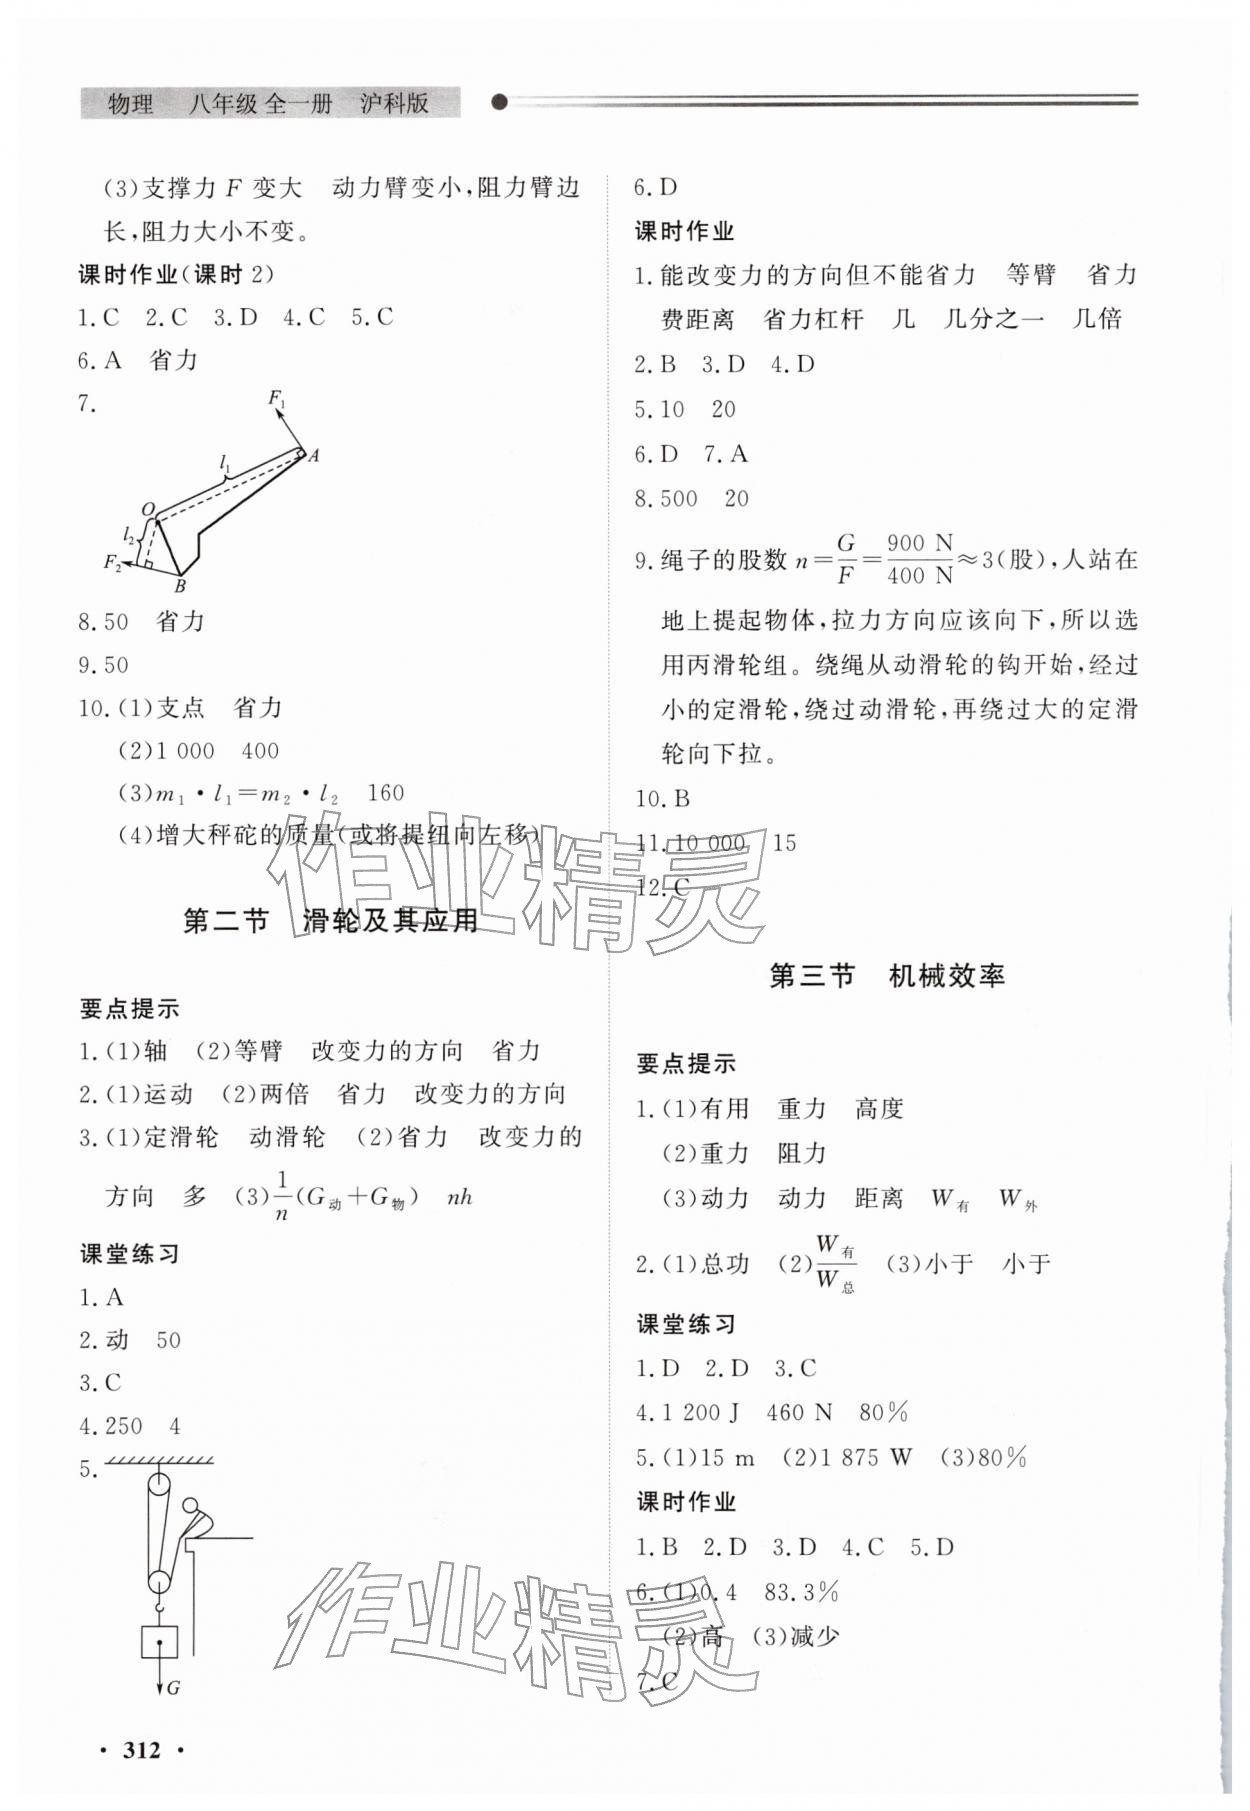 物理　八年级 全一册　沪科版
(3)支撑力 F 变大　动力臂变小,阻力臂边
长,阻力大小不变。
课时作业(课时 2)
1.C　2.C　3.D　4.C　5.C
6.A　省力
7.
F₁
A
l₁
O
l₂
F₂
B
8.50　省力
9.50
10.(1)支点　省力
(2)1 000　400
(3)m₁・l₁=m₂・l₂　160
(4)增大秤砣的质量(或将提纽向左移)
第二节　滑轮及其应用
要点提示
1.(1)轴　(2)等臂　改变力的方向　省力
2.(1)运动　(2)两倍　省力　改变力的方向
3.(1)定滑轮　动滑轮　(2)省力　改变力的
方向　多　(3)1/n(G动+G物)　nh
课堂练习
1.A
2.动　50
3.C
4.250　4
5.
G
・312・
6.D
课时作业
1.能改变力的方向但不能省力　等臂　省力
费距离　省力杠杆　几　几分之一　几倍
2.B　3.D　4.D
5.10　20
6.D　7.A
8.500　20
9.绳子的股数 n=G/F=900 N/400 N≈3(股),人站在
地上提起物体,拉力方向应该向下,所以选
用丙滑轮组。绕绳从动滑轮的钩开始,经过
小的定滑轮,绕过动滑轮,再绕过大的定滑
轮向下拉。
10.B
11.10 000　15
12.C
第三节　机械效率
要点提示
1.(1)有用　重力　高度
(2)重力　阻力
(3)动力　动力　距离　W有　W外
2.(1)总功　(2)W有/W总　(3)小于　小于
课堂练习
1.D　2.D　3.C
4.1 200 J　460 N　80%
5.(1)15 m　(2)1 875 W　(3)80%
课时作业
1.B　2.D　3.D　4.C　5.D
6.(1)0.4　83.3%
(2)高　(3)减少
7.C
作业精灵
作业精灵